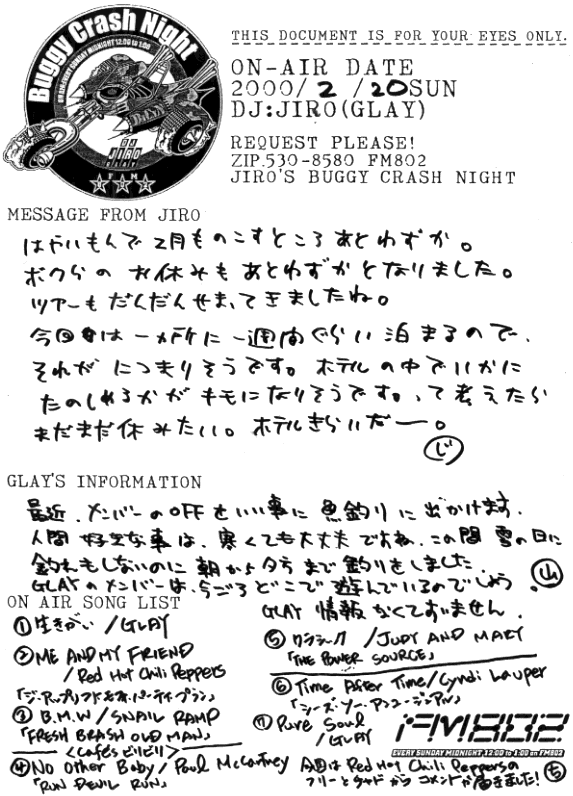 Buggy Crash Night
ON AIR EVERY SUNDAY MIDNIGHT 12:00 to 1:00
DJ
JIRO
GLAY
FM
802
THIS DOCUMENT IS FOR YOUR EYES ONLY.
ON-AIR DATE
2000/2/20SUN
DJ:JIRO(GLAY)
REQUEST PLEASE!
ZIP.530-8580 FM802
JIRO'S BUGGY CRASH NIGHT
MESSAGE FROM JIRO
はやいもんで2月ものこすところあとわずか。
ボクらのお休みもあとわずかとなりました。
ツアーもだんだんせまってきましたね。
今回は一ヵ所に一週間ぐらい泊まるので、
それがにつまりそうです。ホテルの中でいかに
たのしめるかがキモになりそうです。って考えたら
まだまだ休みたい。ホテルきらいだー。
じ
GLAY'S INFORMATION
最近、メンバーのOFFをいい事に魚釣りに出かけます。
人間好きな事は、寒くても大丈夫ですね。この間雪の日に
釣れもしないのに朝から夕方まで釣りをしました。
GLAYのメンバーは、今ごろどこで遊んでいるのでしょう。
山
GLAY情報なくてすいません。
ON AIR SONG LIST
①生きがい/GLAY
②ME AND MY FRIEND
/Red Hot Chili Peppers
「ジ・アップリフト・モフォ・パーティ・プラン」
③B.M.W/SNAIL RAMP
「FRESH BRASH OLD MAN」
<Cafe's ビリビリ>
④No Other Baby/Paul McCartney
「RUN DEVIL RUN」
⑤クラシック/JUDY AND MARY
「THE POWER SOURCE」
⑥Time After Time/Cyndi Lauper
「シーズ・ソー・アンユージュアル」
⑦Pure Soul
/GLAY
FM802
EVERY SUNDAY MIDNIGHT 12:00 to 1:00 on FM802
今回はRed Hot Chili Peppersの
フリーとチャドからコメントが届きました!